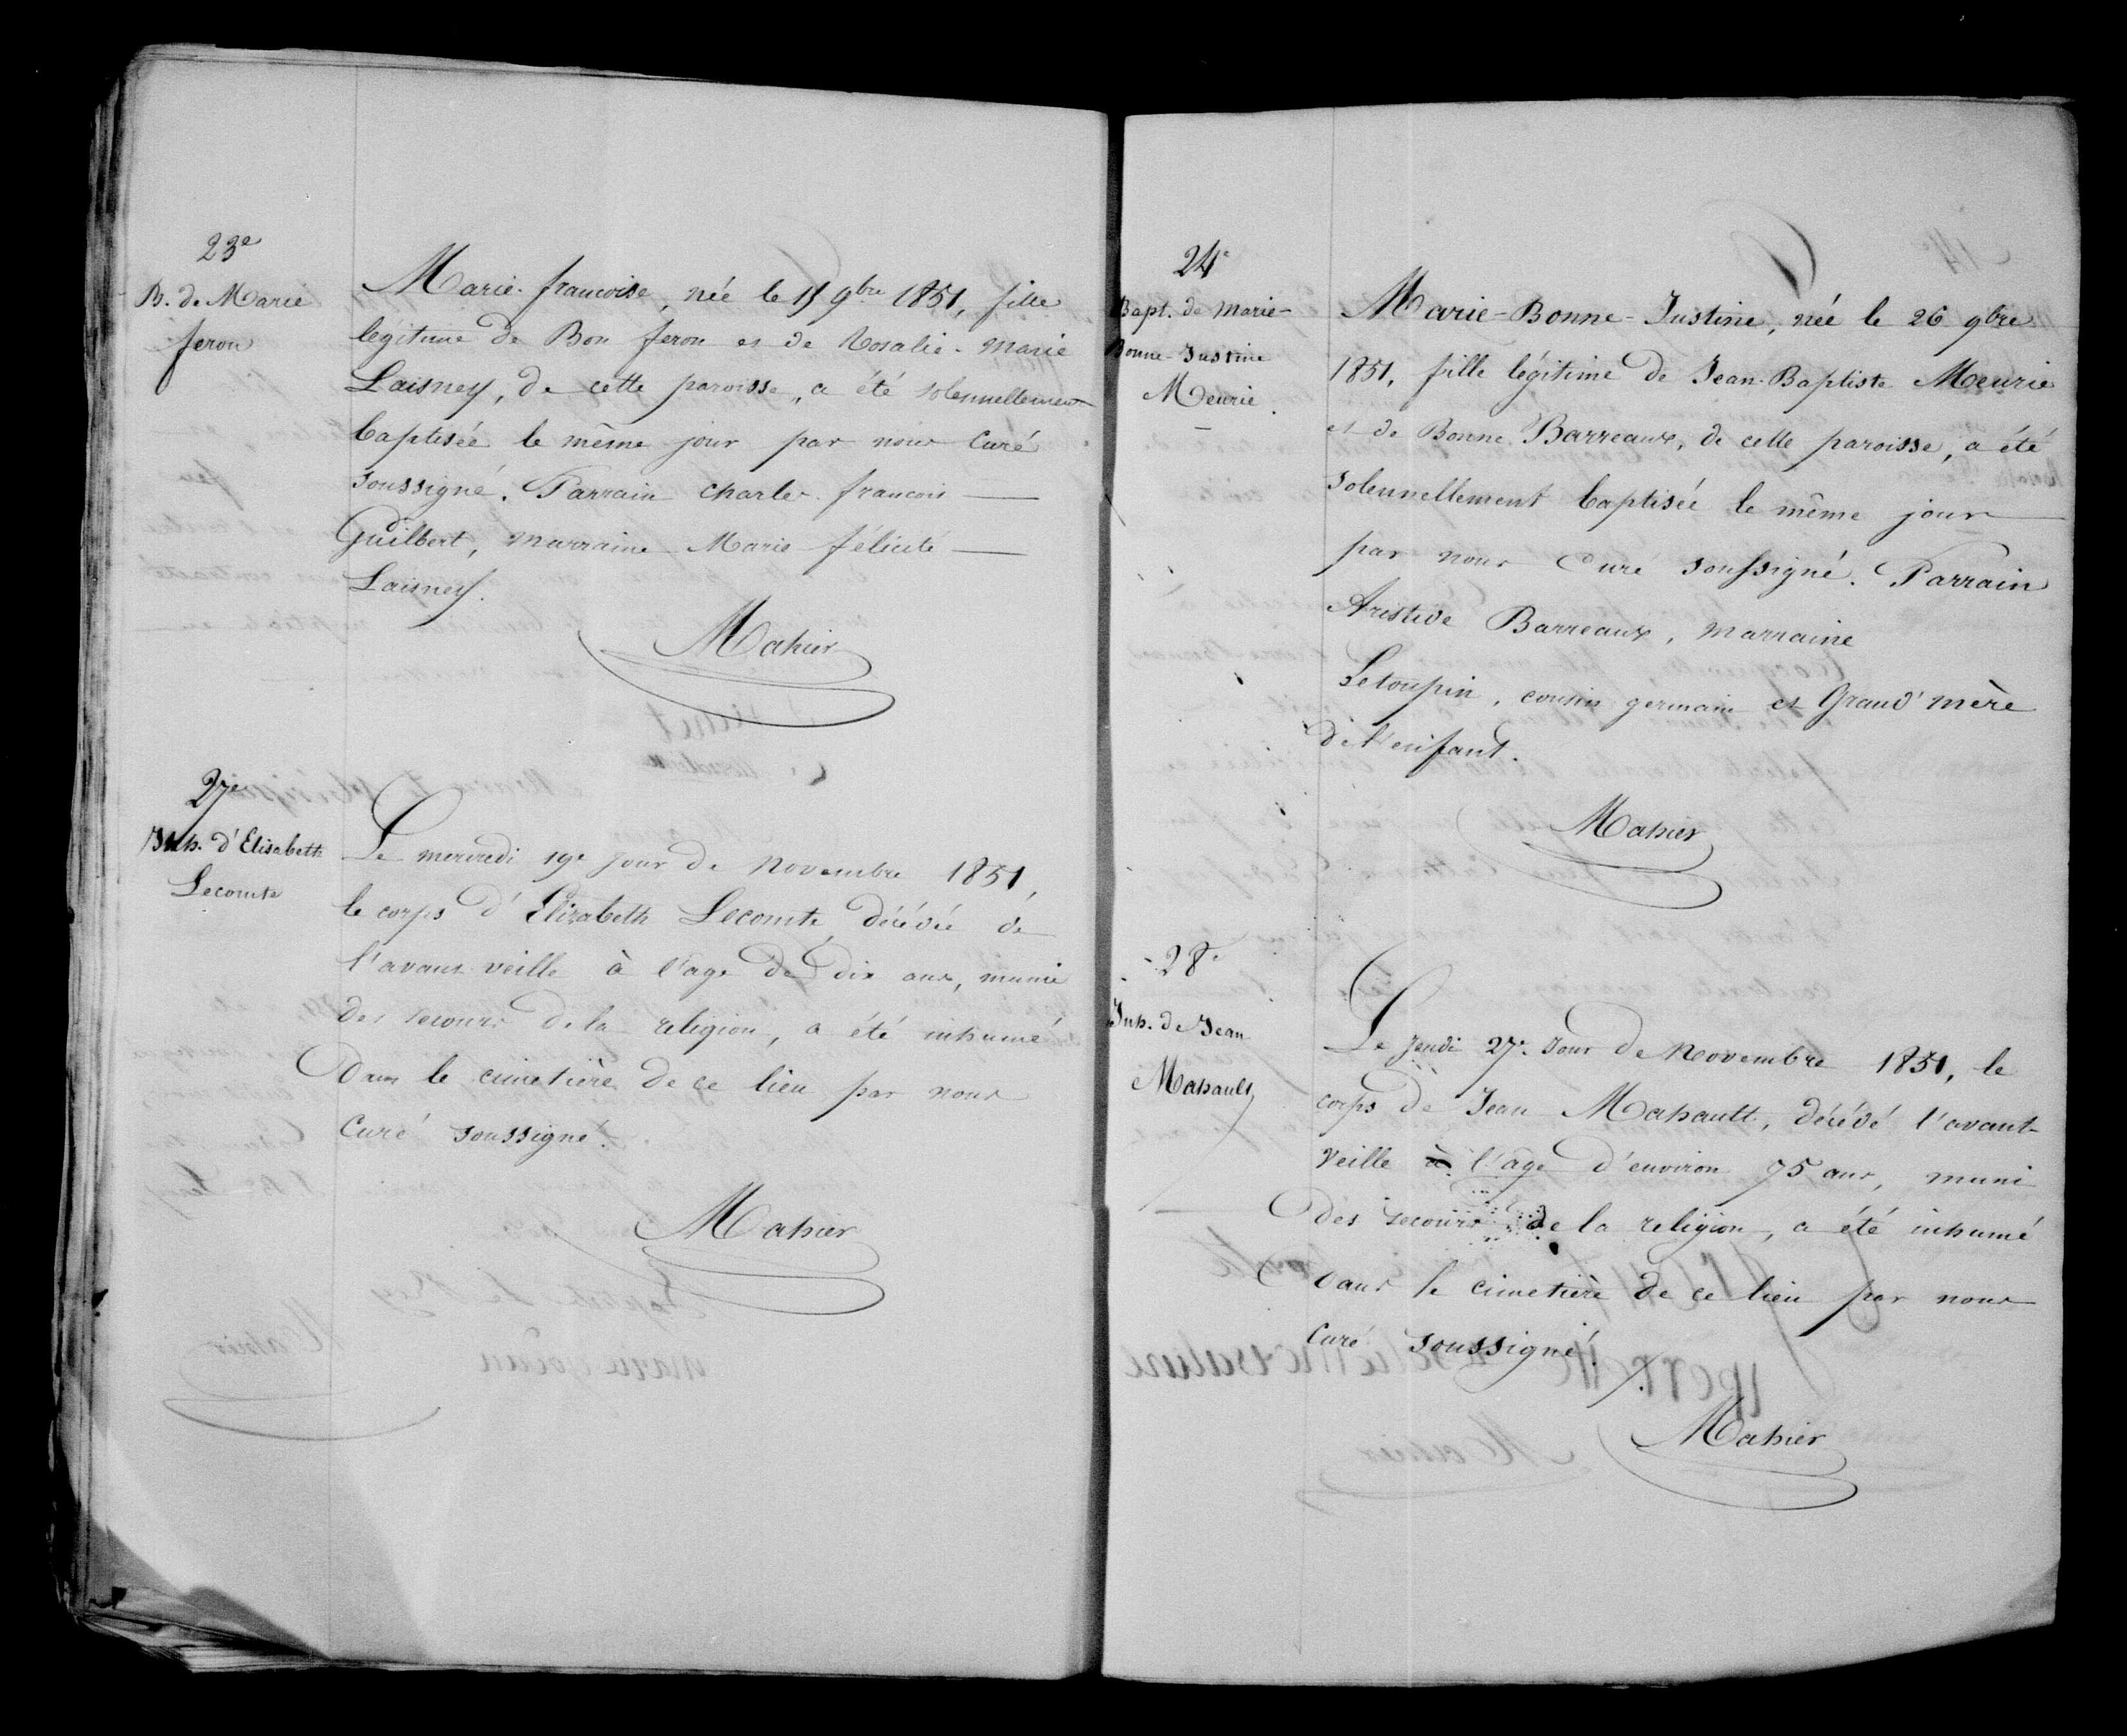 23e
B. de Marie
feron
Marie-francoise, née le 15 9bre 1851, fille
legitime de Bon feron et de Rosalie-Marie
Laisney, de cette paroisse, a été solennellement
baptisée le même jour par nous Curé
soussigné. Parrain Charles francois
Guilbert, marraine Marie félicité
Laisney.
Mahier
27e
Inh. d'Elisabeth
Lecomte
Le mercredi 19e jour de Novembre 1851,
le corps d'Elizabeth Lecomte, décédée de
l'avant veille à l'age de dix ans, munie
des secours de la religion, a été inhumé
Dans le cimetière de ce lieu par nous
Curé soussigné.
Mahier
24e
Bapt. de Marie-
Bonne-Justine
Meurie.
Marie-Bonne-Justine, née le 26 9bre
1851, fille légitime de Jean-Baptiste Meurie
et de Bonne Barreaux, de cette paroisse, a été
solennellement baptisée le même jour
par nous Curé soussigné. Parrain
Aristide Barreaux, marraine
Letoupin, cousin germain et Grand'mère
de l'enfant.
Mahier
28e
Inh. de Jean
Mahault
Le jeudi 27e Jour de Novembre 1851, le
corps de Jean Mahault, décédé l'avant-
veille à l'age d'environ 75 ans, muni
des secours de la religion, a été inhumé
dans le cimetière de ce lieu par nous
Curé soussigné.
Mahier